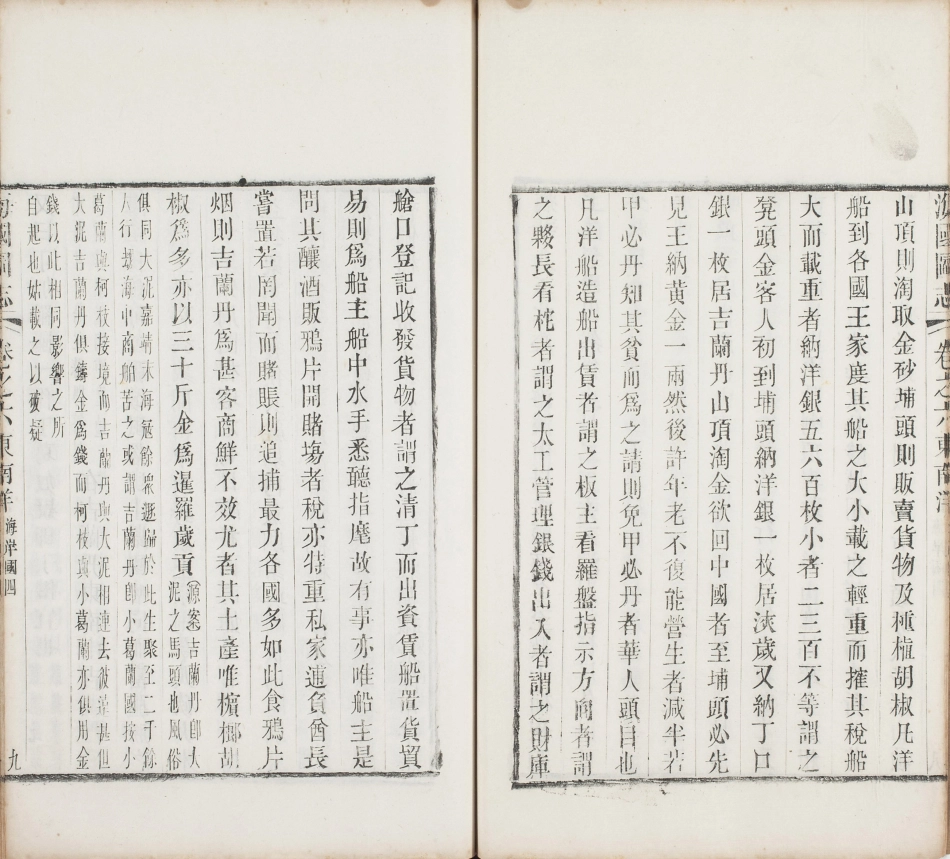 海國圖志 卷之六 東南洋
山頂則淘取金砂埔頭則販賣貨物及種植胡椒凡洋
船到各國王家度其船之大小載之輕重而搉其稅船
大而載重者納洋銀五六百枚小者二三百不等謂之
凳頭金客人初到埔頭納洋銀一枚居浹歲又納丁口
銀一枚居吉蘭丹山頂淘金欲回中國者至埔頭必先
見王納黃金一兩然後許年老不復能營生者減半若
甲必丹知其貧而為之請則免甲必丹者華人頭目也
凡洋船造船出賃者謂之板主看羅盤指示方向者謂
之夥長看柁者謂之太工管理銀錢出入者謂之財庫
艙口登記收發貨物者謂之清丁而出資賃船置貨貿
易則爲船主船中水手悉聽指麾故有事亦唯船主是
問其釀酒販鴉片開賭塲者稅亦特重私家逋負酋長
嘗置若罔聞而賭賬則追捕最力各國多如此食鴉片
烟則吉蘭丹爲甚客商鮮不效尤者其土產唯檳榔胡
椒爲多亦以三十斤金爲暹羅歲貢
源案吉蘭丹卽大
泥之馬頭也風俗
俱同大泥嘉靖末海冦餘衆遯歸於此生聚至二千餘
人行刼海中商舶苦之或謂吉蘭丹卽小葛蘭國按小
葛蘭與柯枝接境而吉蘭丹與大泥相連去彼洋甚也
大泥吉蘭丹俱鑄金爲錢而柯枝與小葛蘭亦俱用金
錢以此相同影響之所
自起也姑載之以破疑
海國圖志 卷之六 東南洋 海岸國四 九